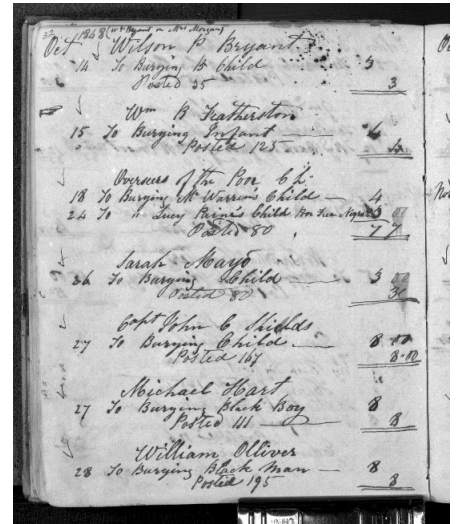 32
Oct 1848 (w + Bryant on Mrs Morgan)
Wilson P Bryant
14 To Burying B Child 3
Posted 35 3
Wm B Featherston
15 To Burying Infant 4
Posted 125 4
Overseers of the Poor Ch.
18 To Burying Mc Warrens Child 4
24 To " Lucy Paines Child 3 00
Posted 80 7 7
Sarah Mayo
26 To Burying Child 3 00
Posted 80 3
Capt John C Shields
27 To Burying Child 8 00
Posted 167 8-00
Michael Hart
27 To Burying Black Boy 8
Posted 111 8
William Olliver
28 To Burying Black Man 8
Posted 195 8